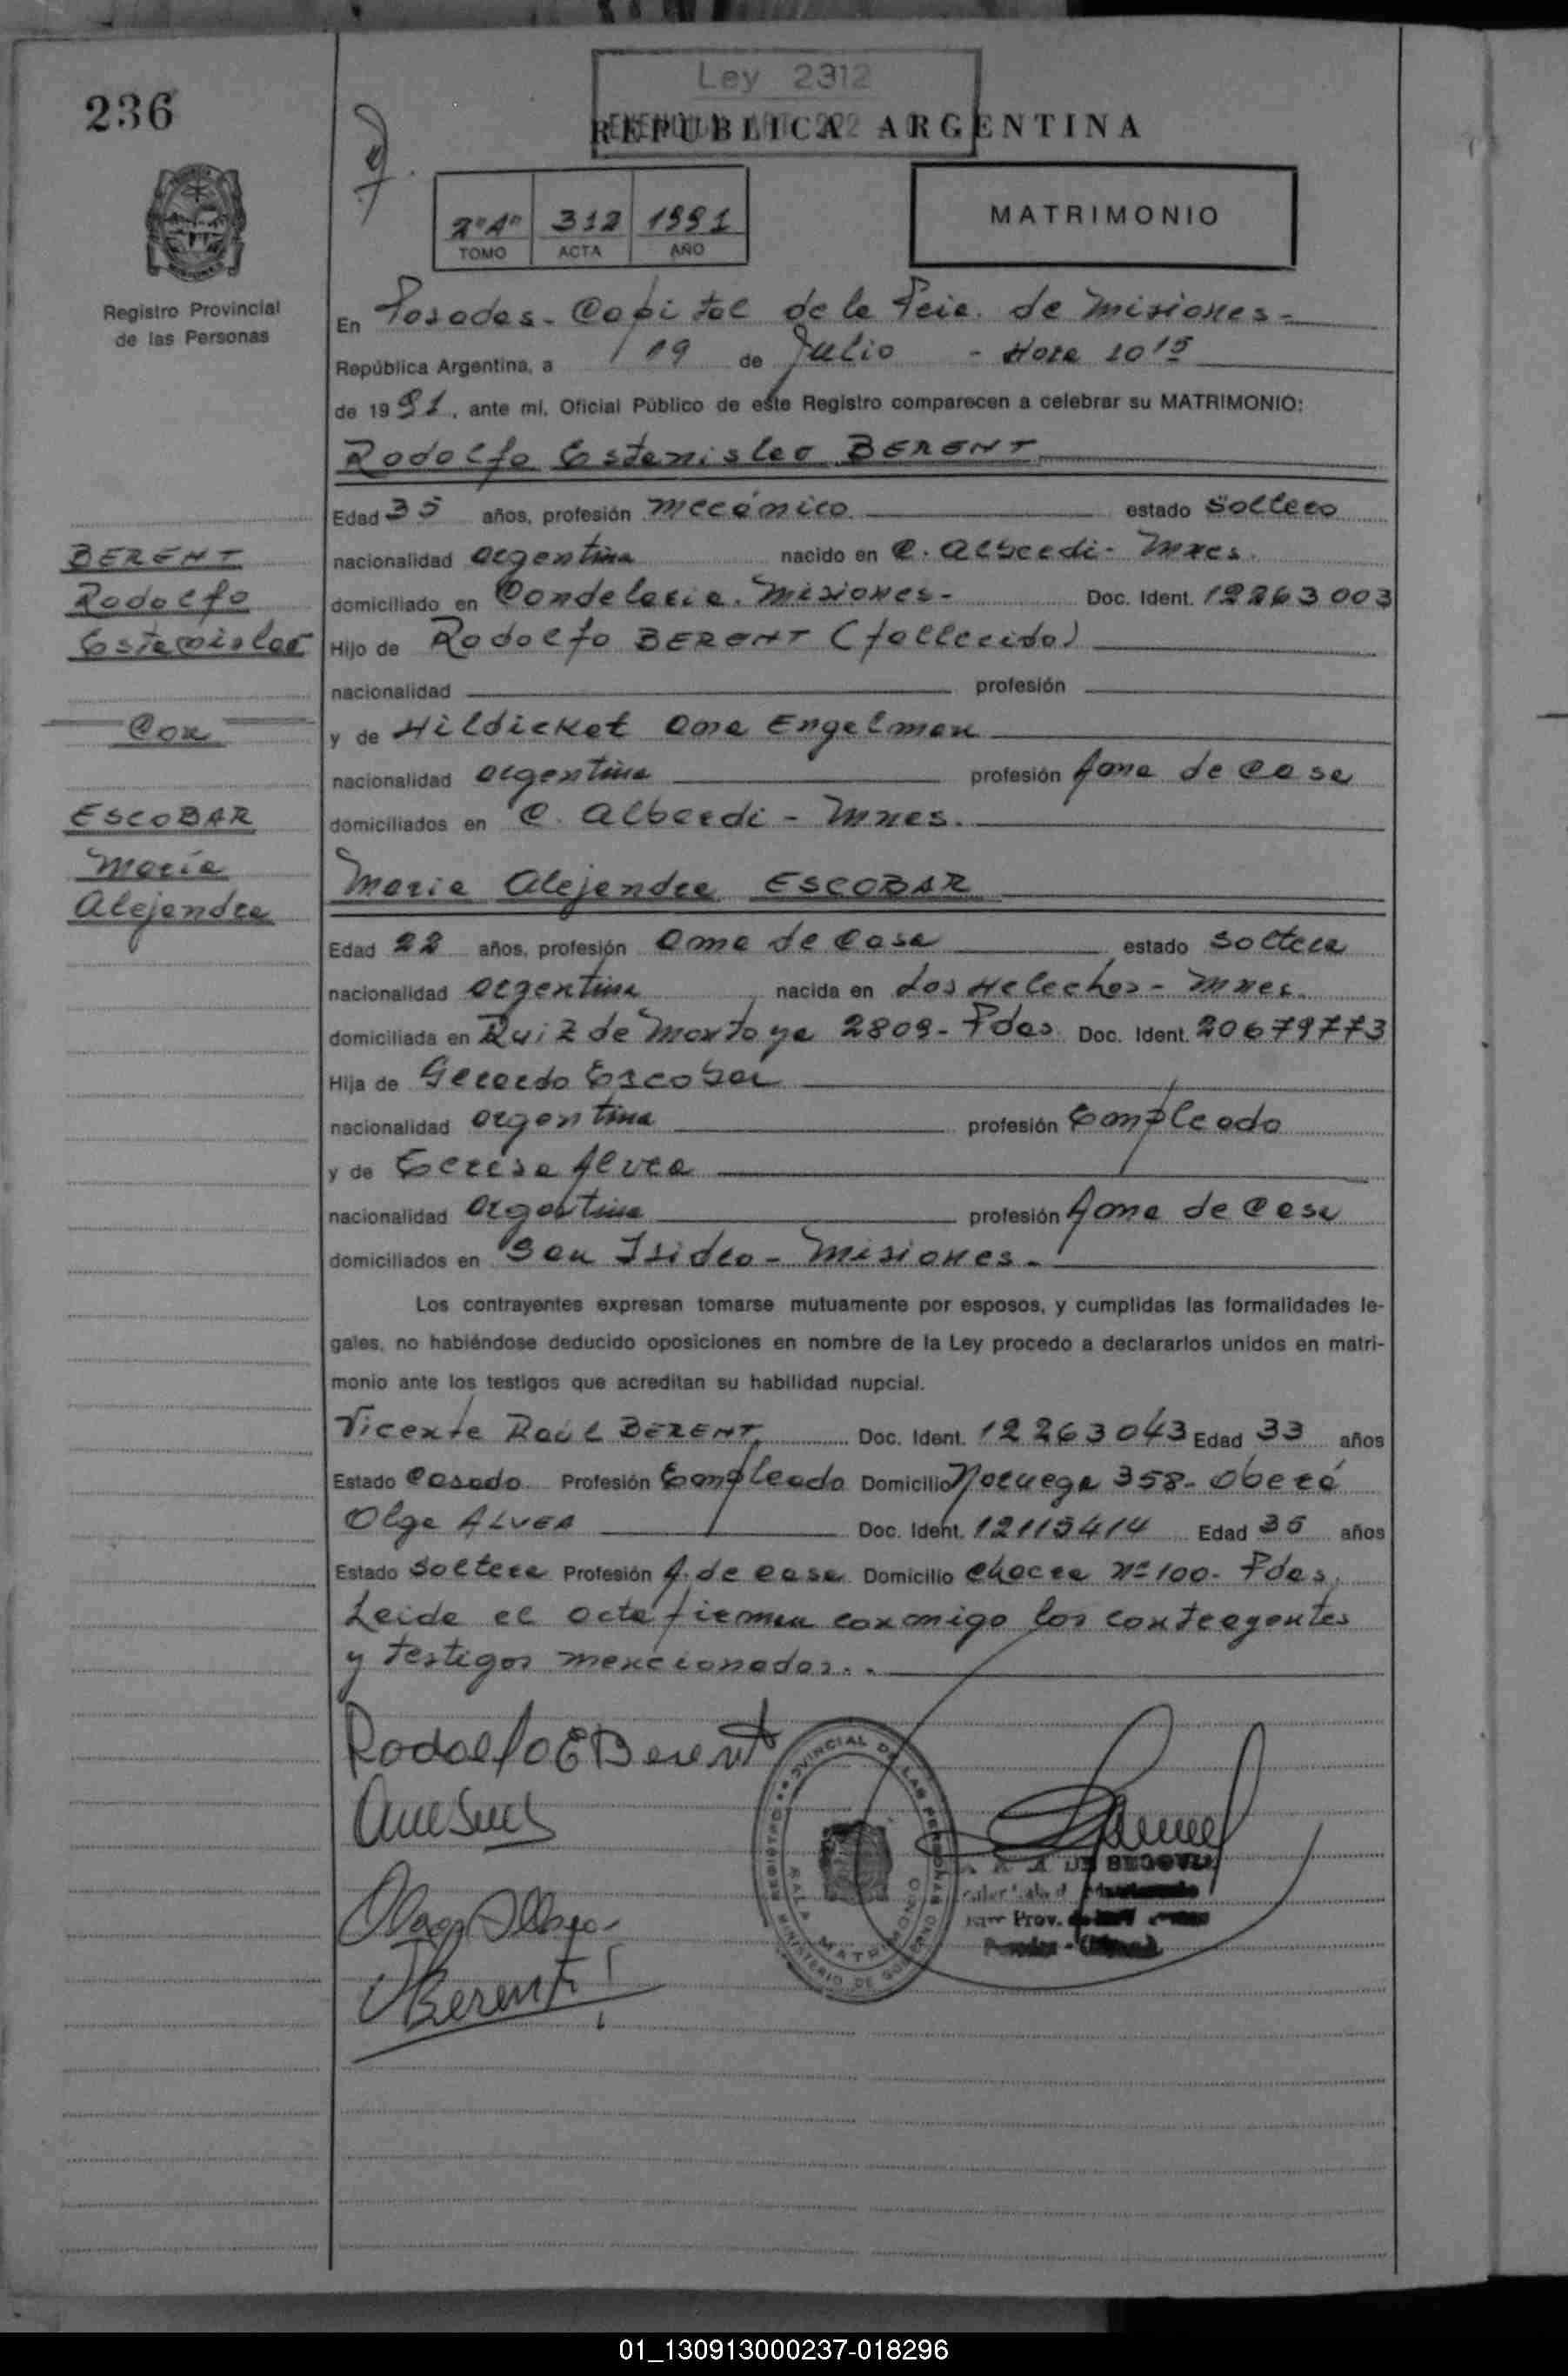 236
Ley 2312
REPUBLICA ARGENTINA
2º Aº 312 1991
TOMO ACTA AÑO
MATRIMONIO
Registro Provincial
de las Personas
En Posadas - Capital de la Pcia. de Misiones -
República Argentina, a 19 de Julio - Hora 10 15
de 1991, ante mí, Oficial Público de este Registro comparecen a celebrar su MATRIMONIO:
Rodolfo Estanislao BERENT
Edad 35 años, profesión mecánico estado soltero
BERENT
Rodolfo
Estanislao
Con
ESCOBAR
María
Alejandra
nacionalidad argentina nacido en C. Alberdi - Mnes.
domiciliado en Candelaria. Misiones - Doc. Ident. 12263003
Hijo de Rodolfo BERENT (fallecido)
nacionalidad profesión
y de Hildicket Ana Engelman
nacionalidad argentina profesión Ama de casa
domiciliados en C. Alberdi - Mnes.
Maria Alejandra ESCOBAR
Edad 22 años, profesión Ama de Casa estado soltera
nacionalidad argentina nacida en Los Helechos - Mnes.
domiciliada en Ruiz de Montoya 2809 - Pdas Doc. Ident. 20679773
Hija de Gerardo Escobar
nacionalidad argentina profesión Empleado
y de Teresa Alvez
nacionalidad argentina profesión Ama de Casa
domiciliados en San Isidro - Misiones -
Los contrayentes expresan tomarse mutuamente por esposos, y cumplidas las formalidades le-
gales, no habiéndose deducido oposiciones en nombre de la Ley procedo a declararlos unidos en matri-
monio ante los testigos que acreditan su habilidad nupcial.
Vicente Raúl BERENT Doc. Ident. 12263043 Edad 33 años
Estado Casado Profesión Empleado Domicilio Noruega 358 - Oberá
Olga ALVEZ Doc. Ident. 12115414 Edad 35 años
Estado Soltera Profesión A. de casa Domicilio Chacra Nº 100 - Pdas.
Leida el acta firman conmigo los contrayentes
y testigos mencionados..
Rodolfo E Berent
REGISTRO PROVINCIAL DE LAS PERSONAS
SALA MATRIMONIO
MINISTERIO DE GOBIERNO
DE SEGOVIA
Prov.
Berent
01_130913000237-018296